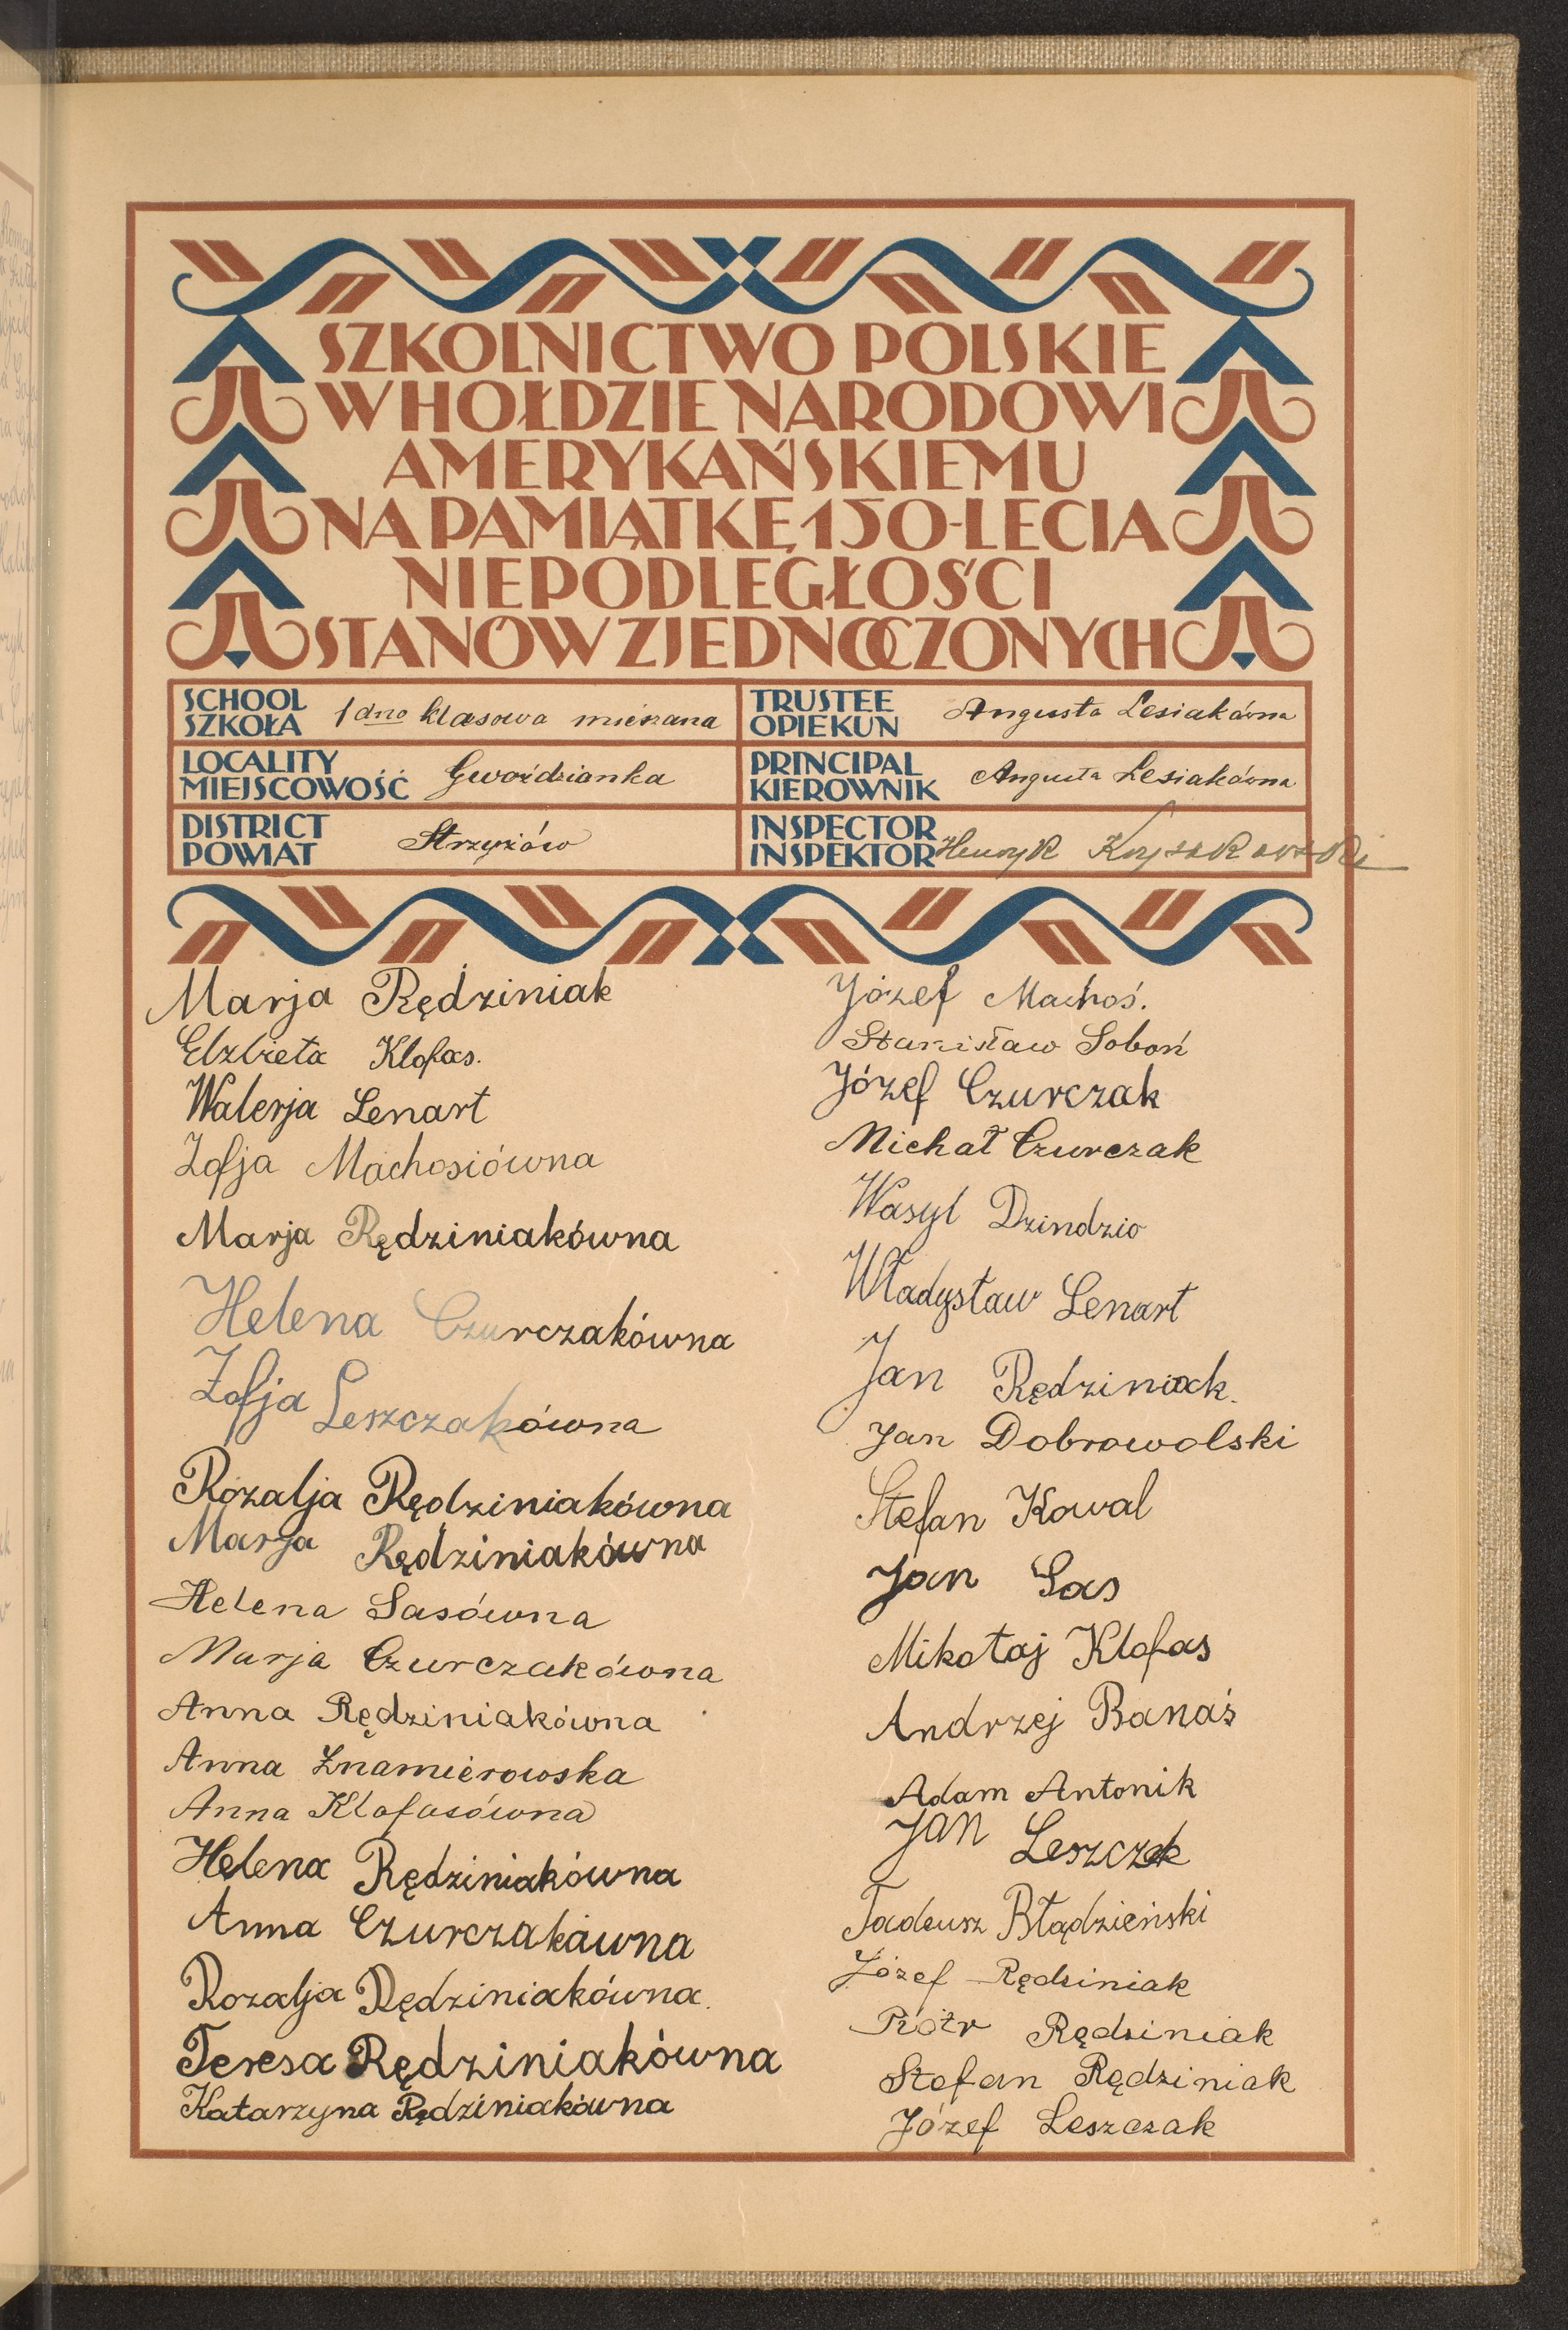 SZKOLNICTWO POLSKIE
W HOŁDZIE NARODOWI
AMERYKAŃSKIEMU
NA PAMIĄTKĘ 150-LECIA
NIEPODLEGŁOŚCI
STANÓW ZJEDNOCZONYCH
SCHOOL
SZKOŁA 1dno klasowa mieszana
TRUSTEE
OPIEKUN Augusta Lesiakówna
LOCALITY
MIEJSCOWOŚĆ Gwoździanka
PRINCIPAL
KIEROWNIK Augusta Lesiakówna
DISTRICT
POWIAT Strzyżów
INSPECTOR
INSPEKTOR Henryk
Marja Rędziniak
Elzbieta Klofas.
Walerja Lenart
Zofja Machosiówna
Marja Rędziniakówna
Helena Czurczakówna
Zofja Leszczakówna
Rozalja Rędziniakówna
Marja Rędziniakówna
Helena Sasówna
Marja Czurczakówna
Anna Rędziniakówna
Anna Znamierowska
Anna Klofasówna
Helena Rędziniakówna
Anna Czurczakówna
Rozalja Rędziniakówna.
Teresa Rędziniakówna
Katarzyna Rędziniakówna
Józef Machoś.
Stanisław Soboń
Józef Czurczak
Michał Czurczak
Wasyl Dzindzio
Władysław Lenart
Jan Rędziniak.
Jan Dobrowolski
Stefan Kowal
Jan Sas
Mikołaj Klofas
Andrzej Banaś
Adam Antonik
Jan Leszczek
Tadeusz Błądzieński
Józef Rędziniak
Piotr Rędziniak
Stefan Rędziniak
Józef Leszczak